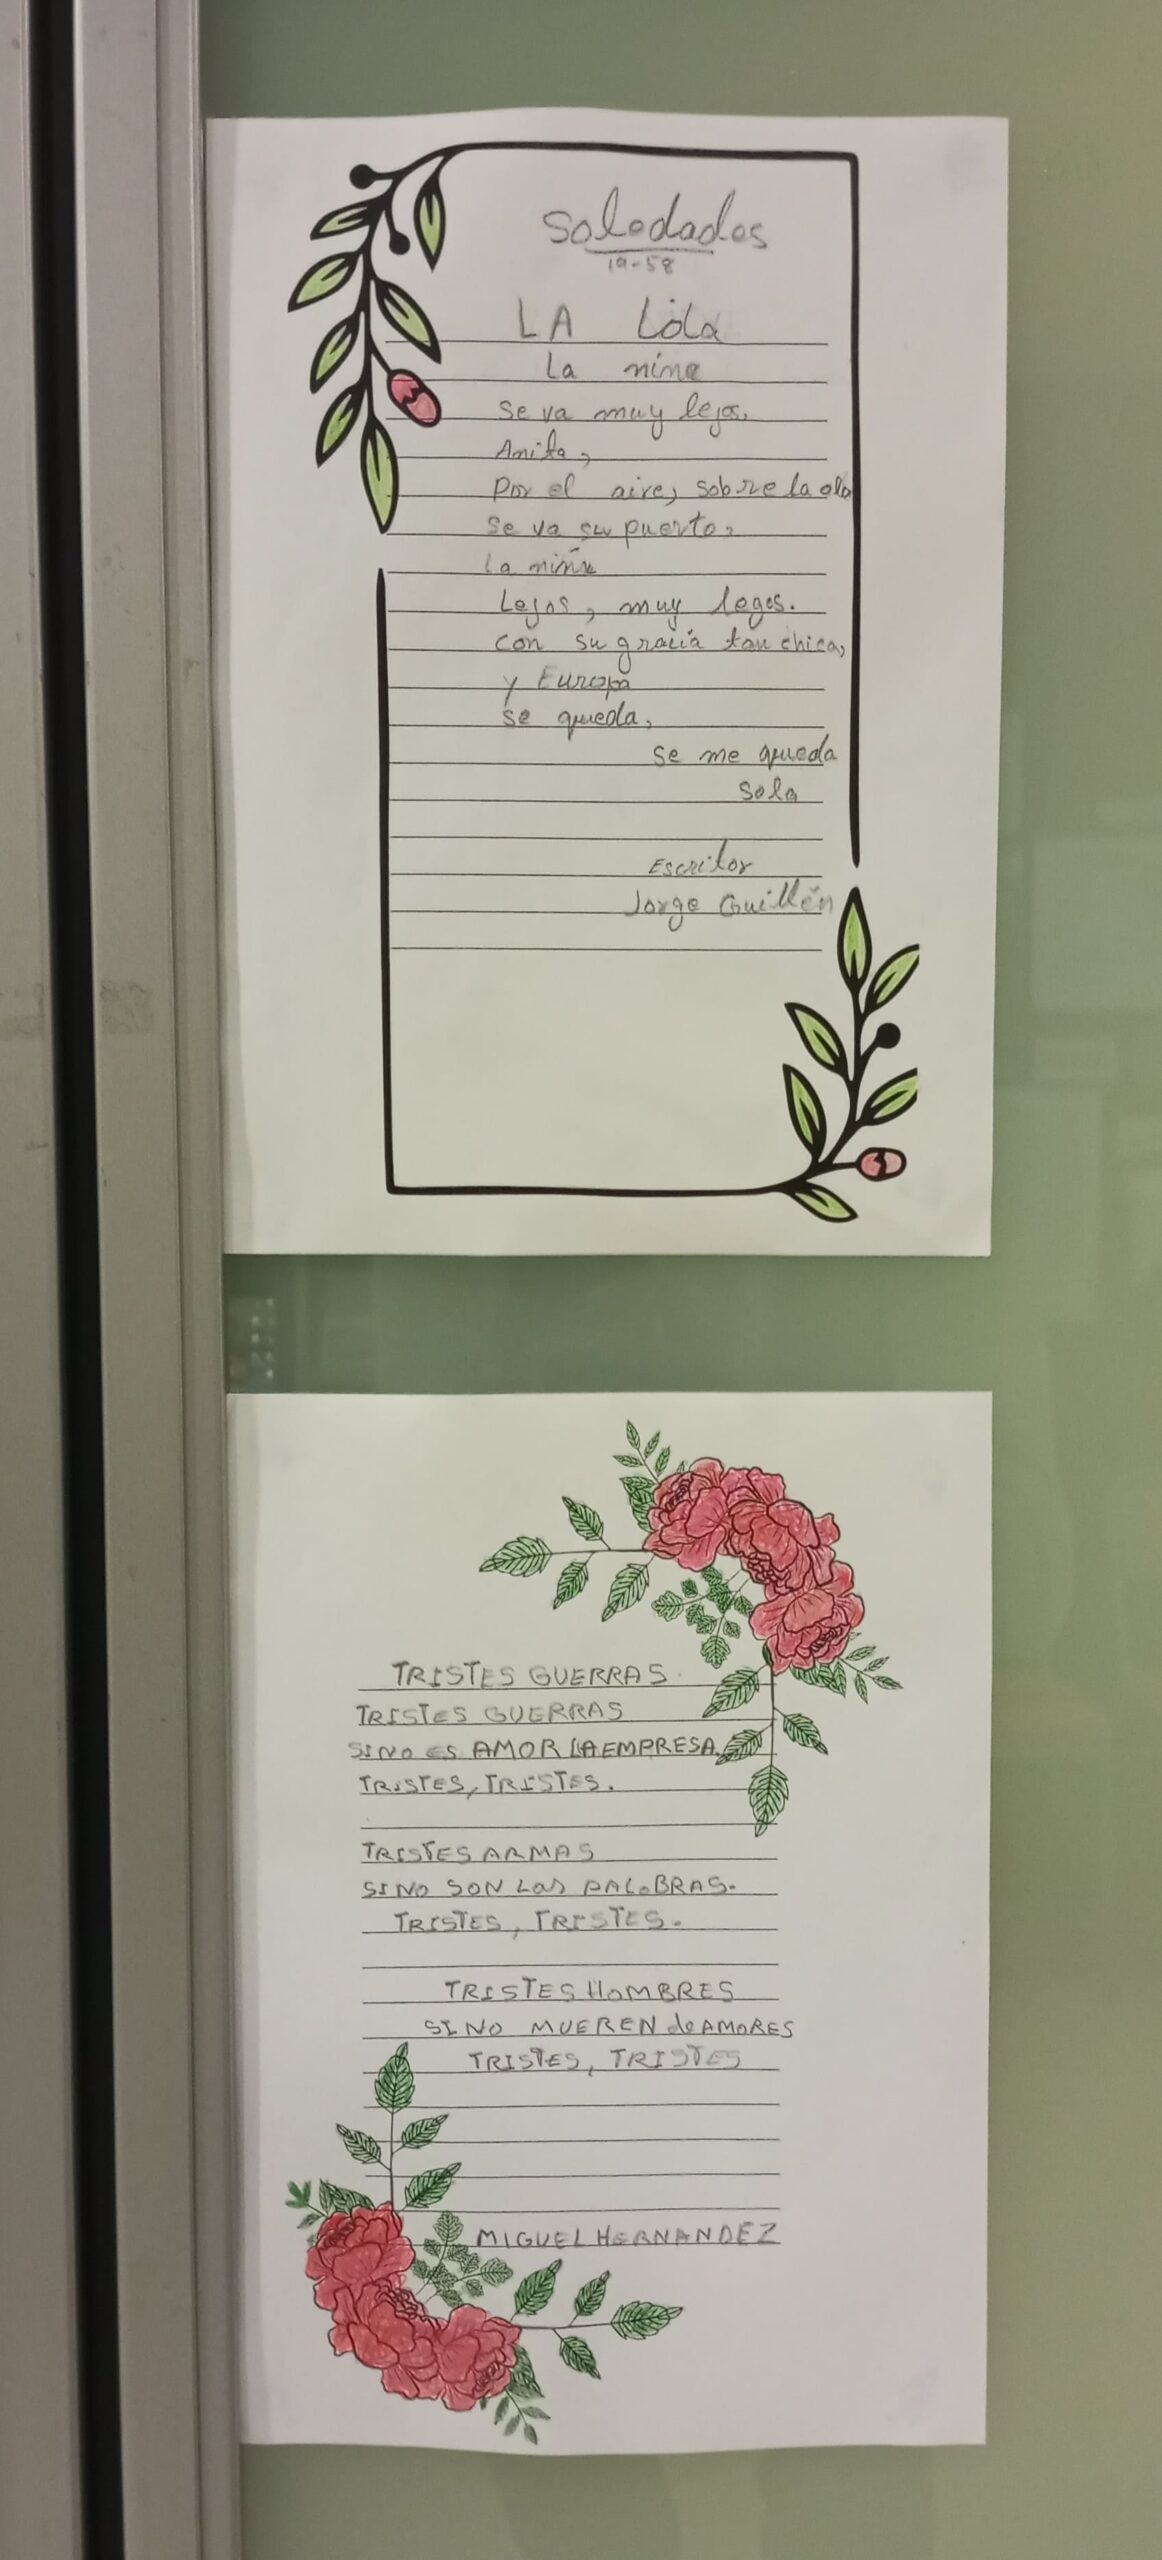 Soledades
19-58
LA Lola
La nina
se va muy lejos.
Anita,
Por el aire, sobre la ola
se va su puerto,
la niña
Lejos, muy leges.
con su gracia tan chica,
y Europa
se queda,
se me queda
sola
Escritor
Jorge Guillén
TRISTES GUERRAS.
TRISTES GUERRAS
SINO ES AMOR LA EMPRESA.
TRISTES, TRISTES.
TRISTES ARMAS
SI NO SON LAS PALOBRAS.
TRISTES, TRISTES.
TRISTES HOMBRES
SI NO MUEREN de AMORES
TRISTES, TRISTES
MIGUEL HERNANDEZ